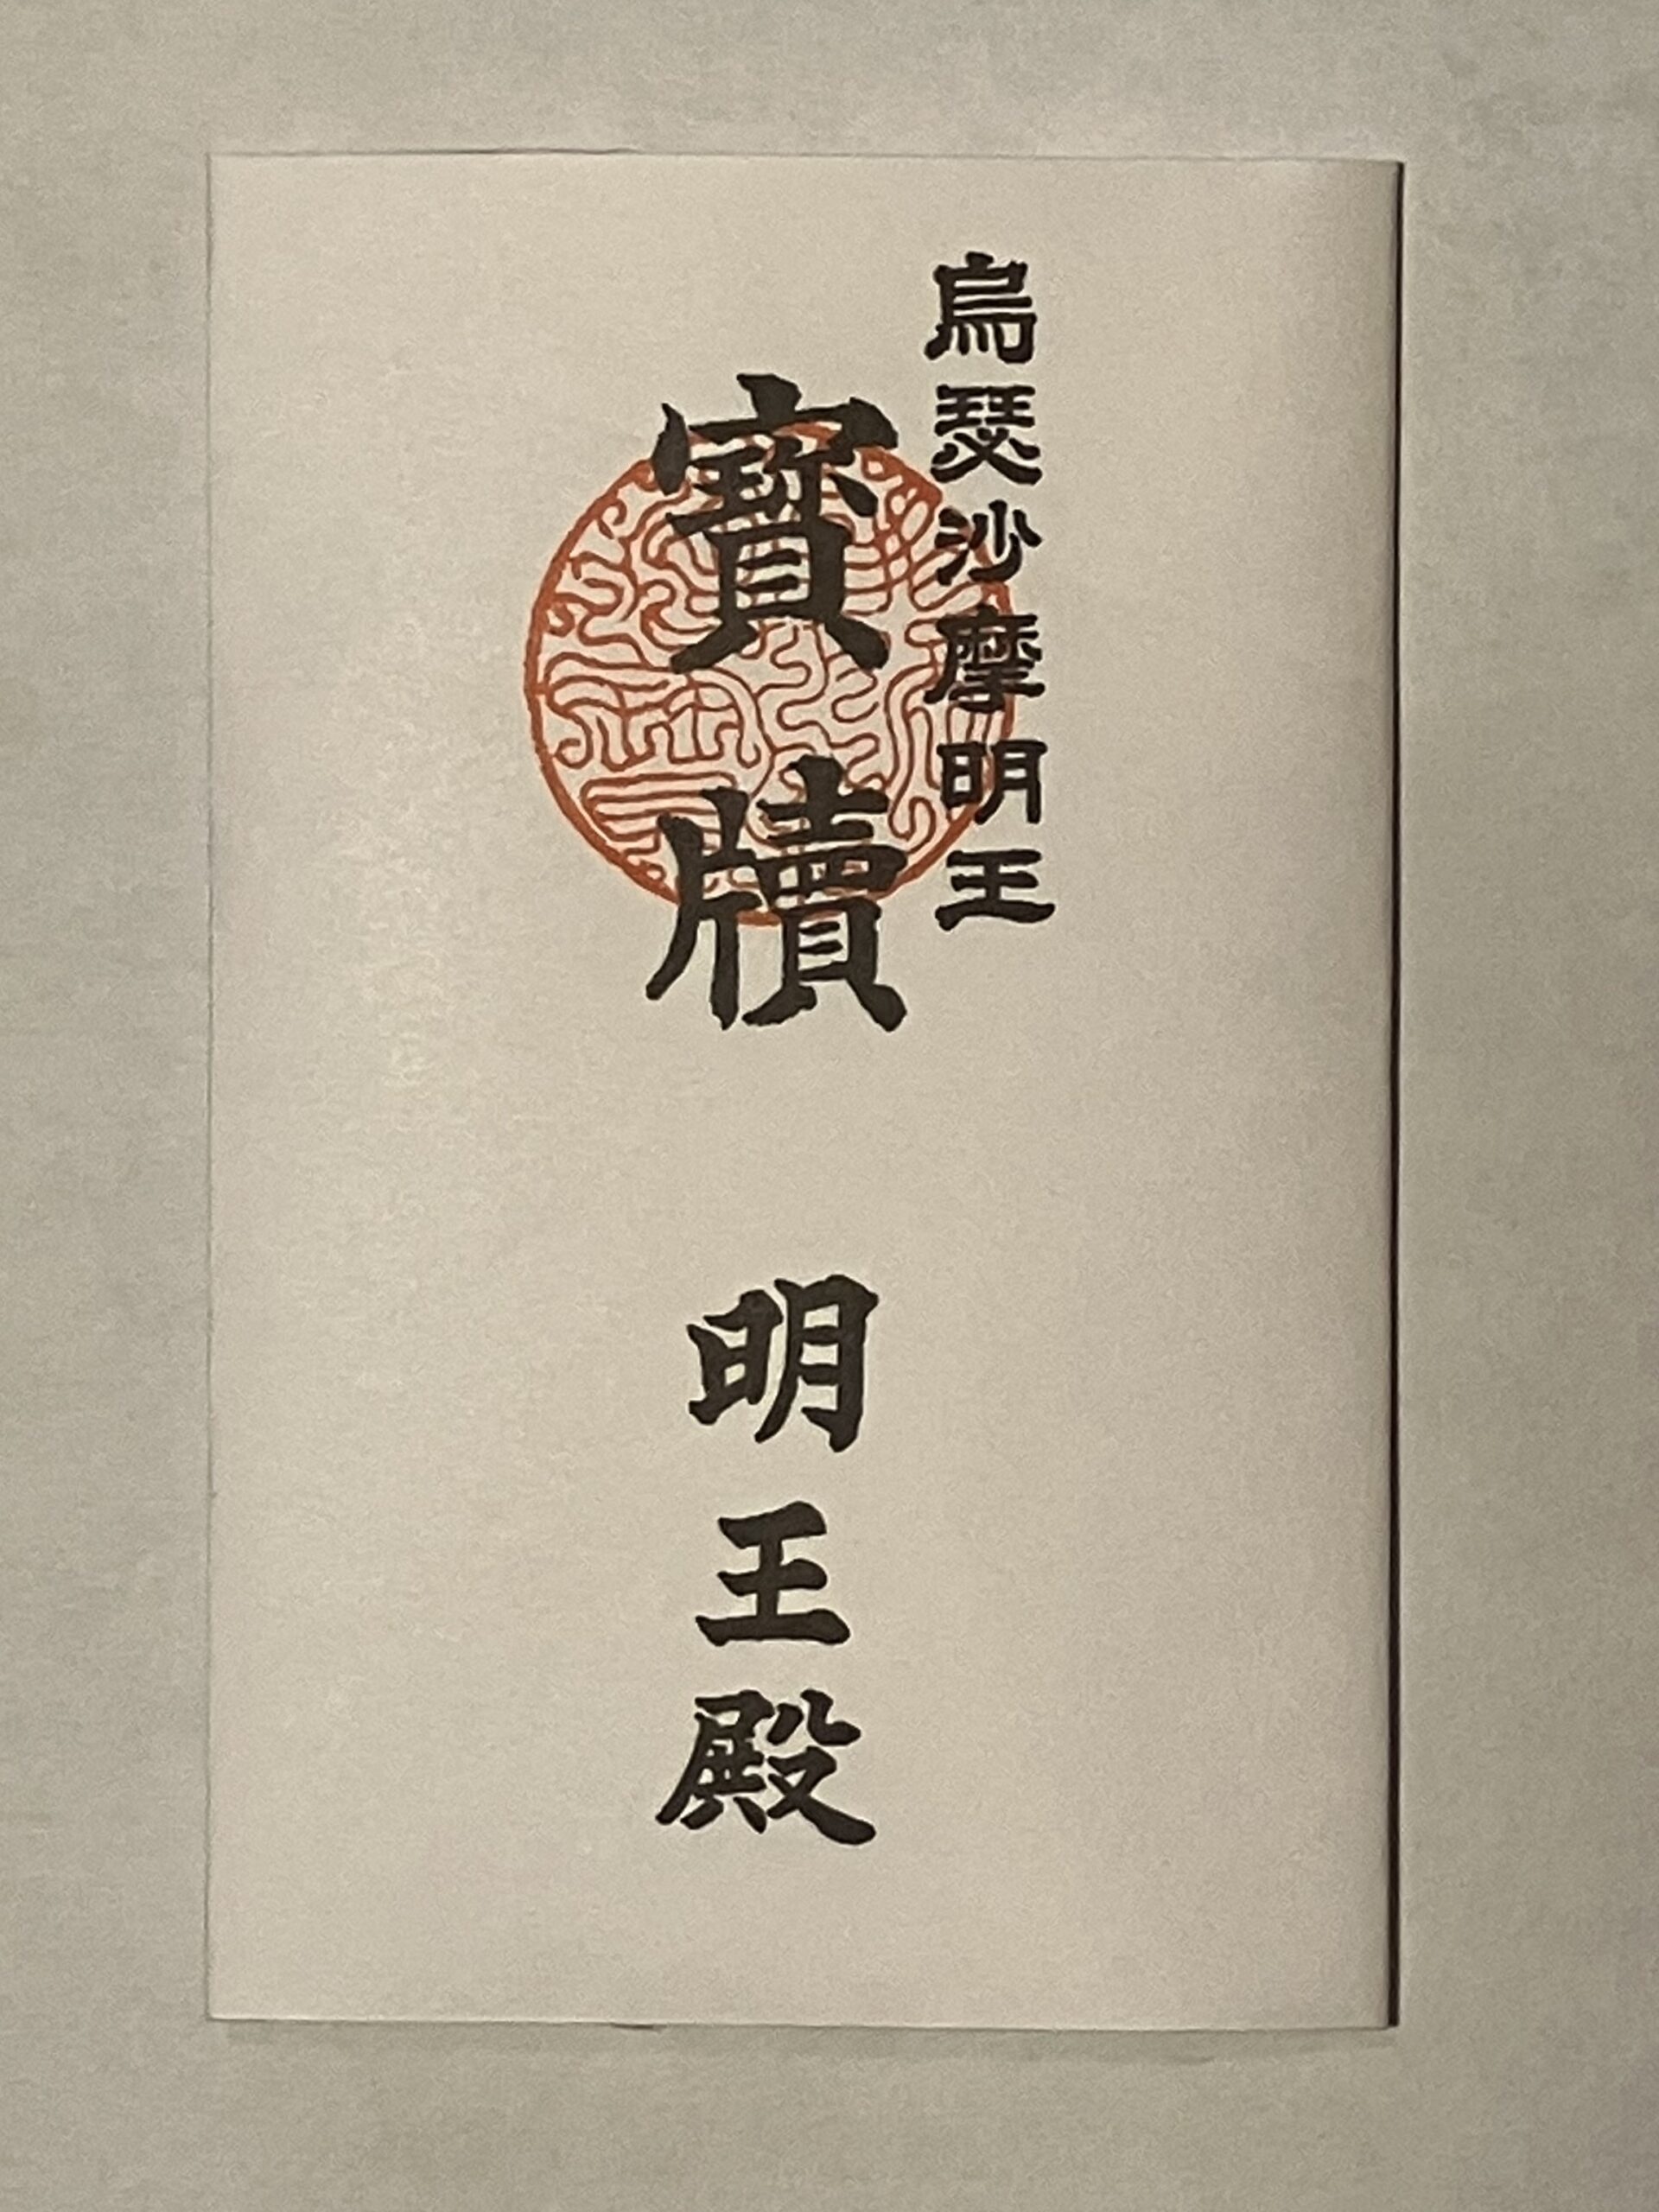 烏瑟沙摩明王
寶牘
明王殿